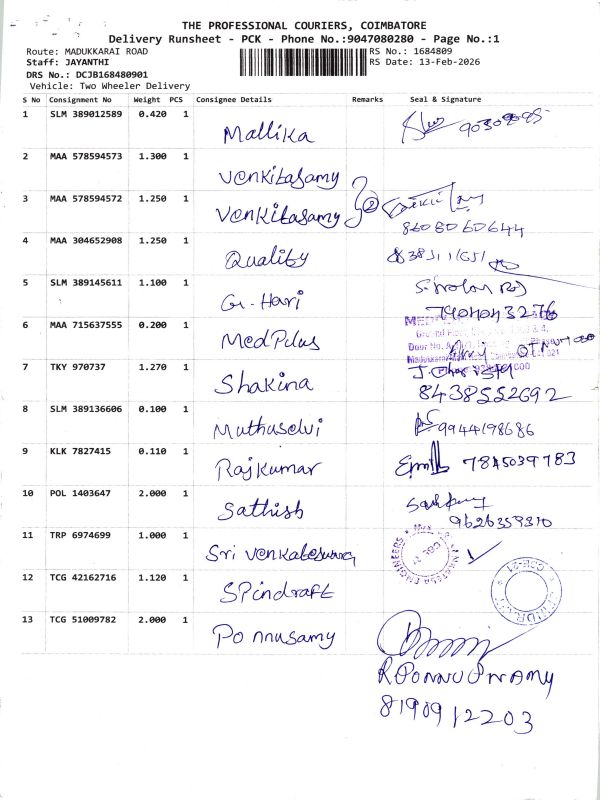 THE PROFESSIONAL COURIERS, COIMBATORE
Delivery Runsheet - PCK - Phone No.:9047080280 - Page No.:1
Route: MADUKKARAI ROAD RS No.: 1684809
Staff: JAYANTHI RS Date: 13-Feb-2026
DRS No.: DCJB168480901
Vehicle: Two Wheeler Delivery
S No Consignment No Weight PCS Consignee Details Remarks Seal & Signature
1 SLM 389012589 0.420 1 Mallika
2 MAA 578594573 1.300 1 Venkitasamy
3 MAA 578594572 1.250 1 Venkitasamy 2
8608060644
4 MAA 304652908 1.250 1 Quality
5 SLM 389145611 1.100 1 G. Hari
7904043276
6 MAA 715637555 0.200 1 MedPlus
7 TKY 970737 1.270 1 Shakina
8438552692
8 SLM 389136606 0.100 1 Muthuselvi 9944178686
9 KLK 7827415 0.110 1 Rajkumar 7845039783
10 POL 1403647 2.000 1 Sathish
9626359310
11 TRP 6974699 1.000 1 Sri Venkateswara
12 TCG 42162716 1.120 1 SPindraft
13 TCG 51009782 2.000 1 Ponnusamy
8190912203